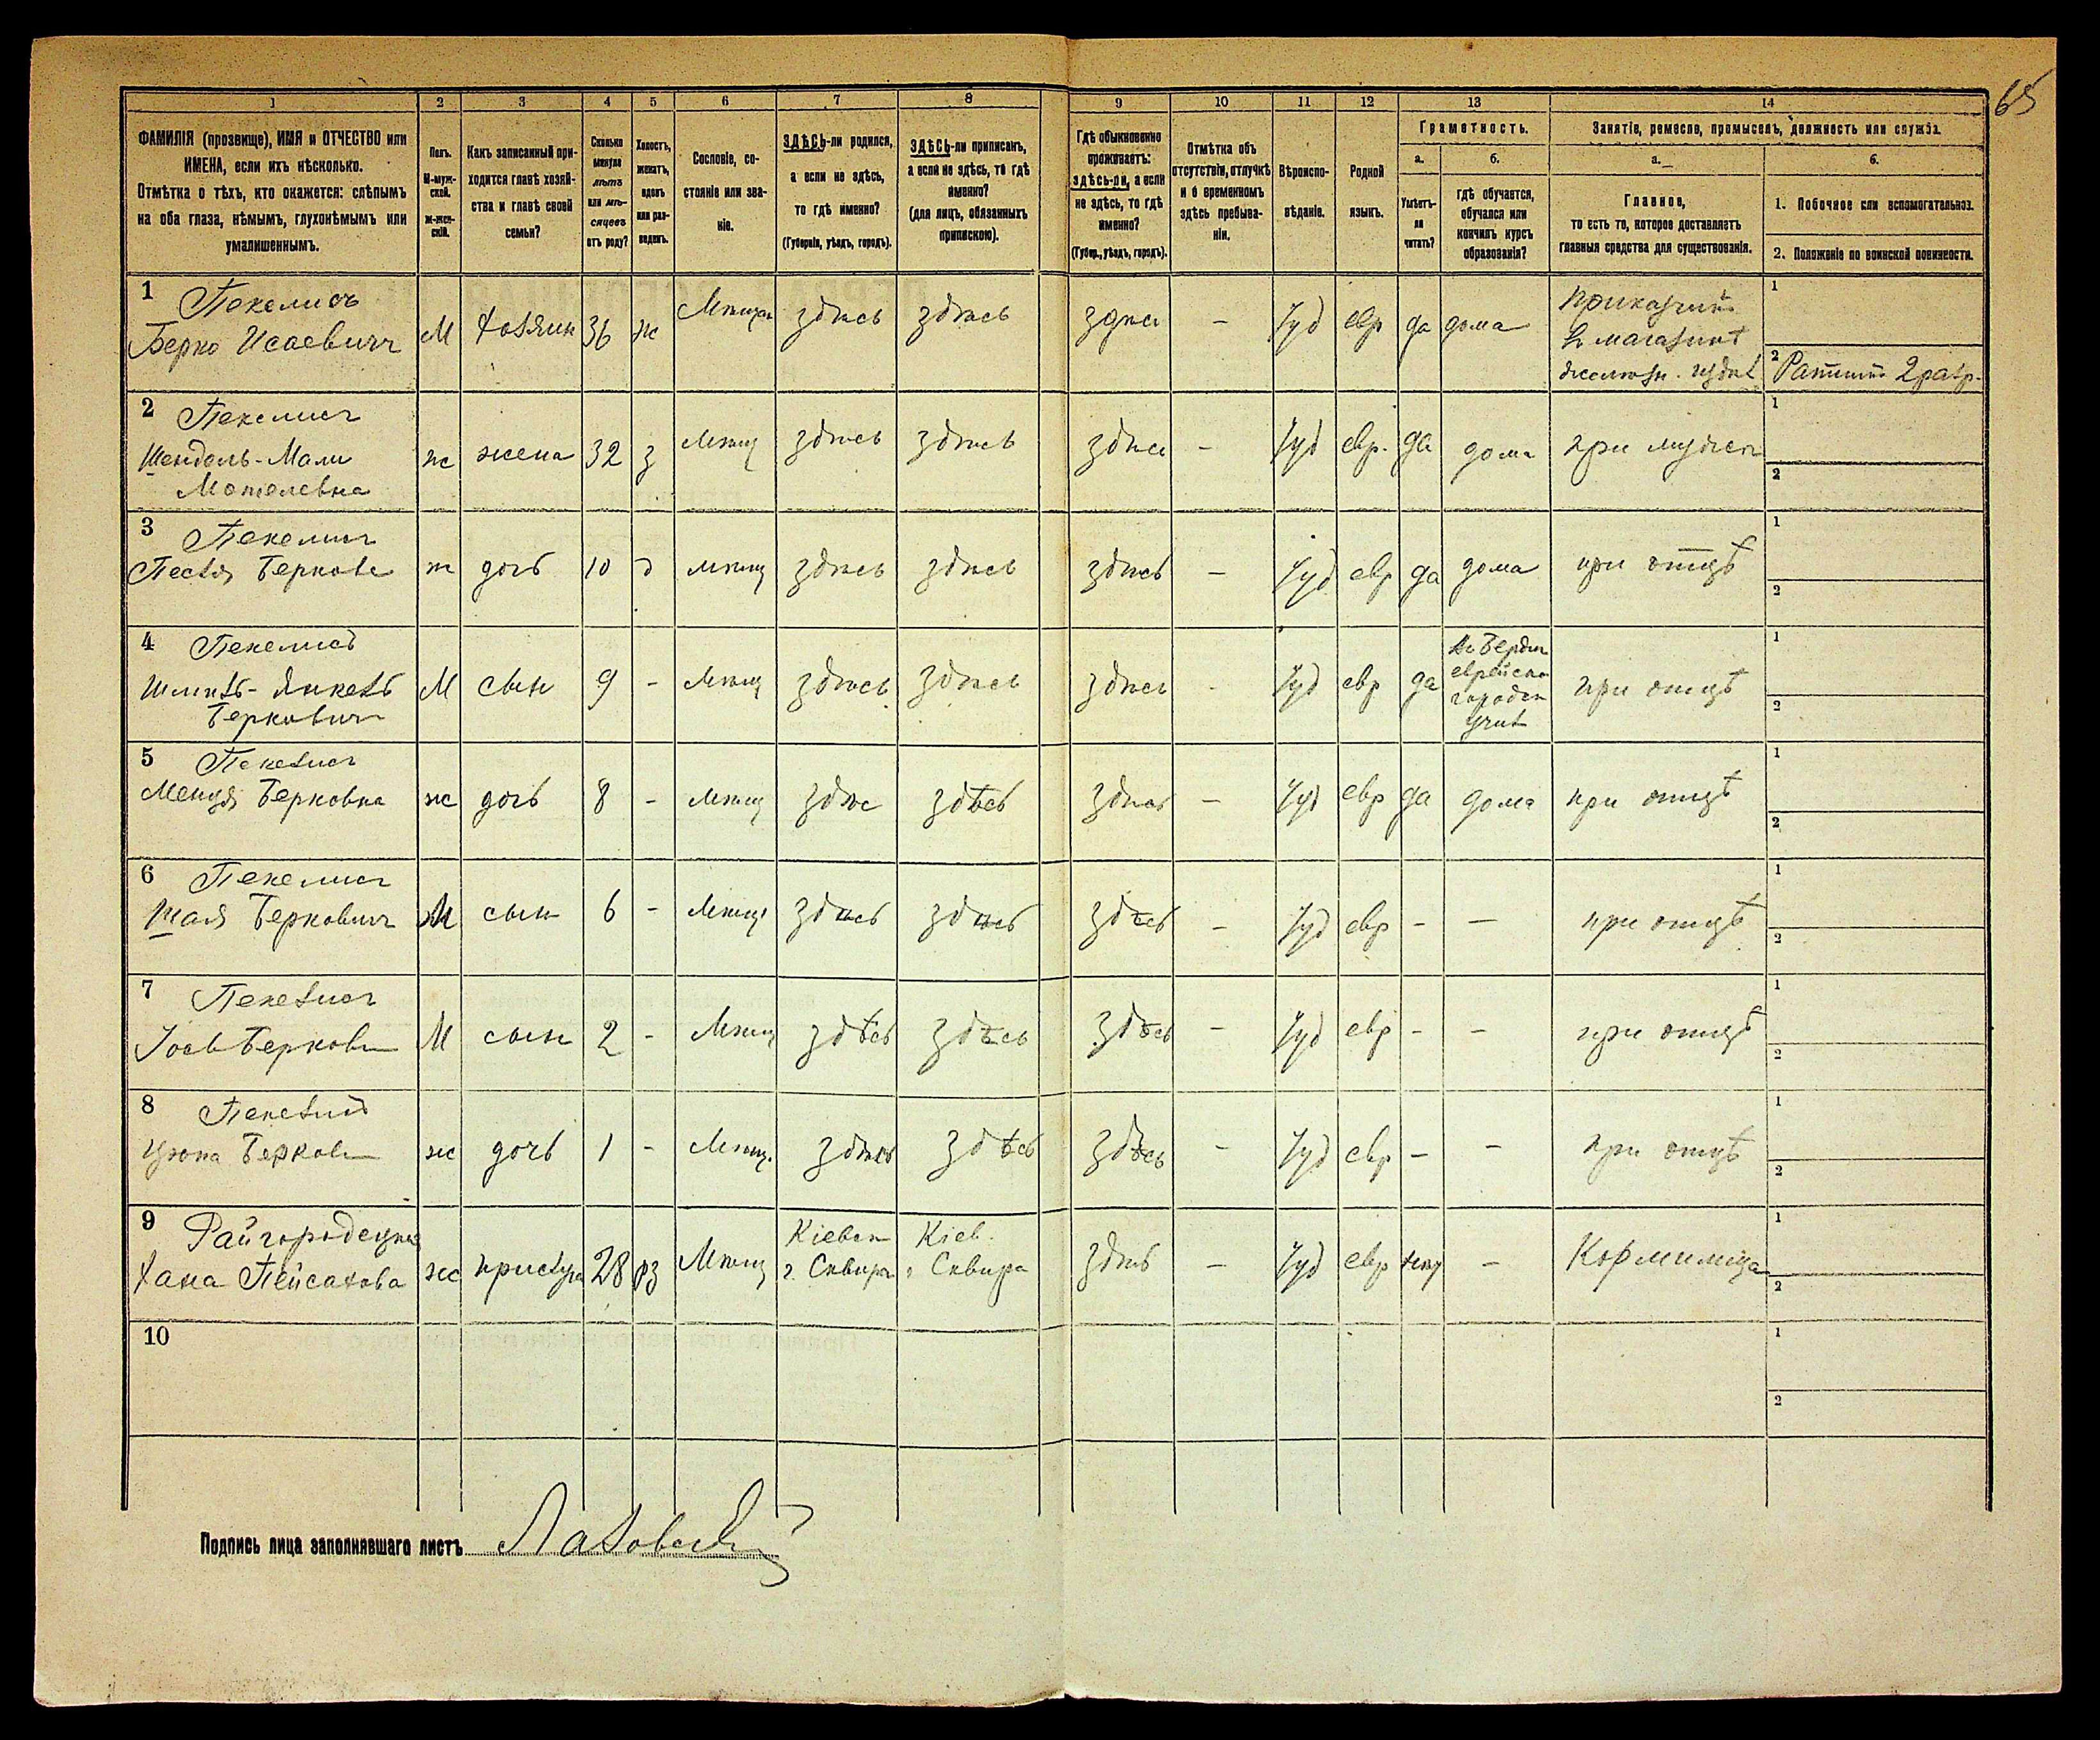 65
1 2 3 4 5 6 7 8 9 10 11 12 13 14
ФАМИЛІЯ (прозвище), ИМЯ и ОТЧЕСТВО или
ИМЕНА, если ихъ нѣсколько.
Отмѣтка о тѣхъ, кто окажется: слѣпымъ
на оба глаза, нѣмымъ, глухонѣмымъ или
умалишеннымъ.
Полъ.
М-муж-
ской.
ж-жен-
скій.
Какъ записанный при-
ходится главѣ хозяй-
ства и главѣ своей
семьи?
Сколько
минуло
лѣтъ
или мѣ-
сяцевъ
отъ роду?
Холостъ,
женатъ,
вдовъ
или раз-
веденъ.
Сословіе, со-
стояніе или зва-
ніе.
ЗДѢСЬ-ли родился,
а если не здѣсь,
то гдѣ именно?
(Губернія, уѣздъ, городъ).
ЗДѢСЬ-ли приписанъ,
а если не здѣсь, то гдѣ
именно?
(для лицъ, обязанныхъ
припискою).
Гдѣ обыкновенно
проживаетъ:
здѣсь-ли, а если
не здѣсь, то гдѣ
именно?
(Губер., уѣздъ, городъ).
Отмѣтка объ
отсутствіи, отлучкѣ
и о временномъ
здѣсь пребыва-
ніи.
Вѣроиспо-
вѣданіе.
Родной
языкъ.
Грамотность.
а.
Умѣетъ-
ли
читать?
б.
гдѣ обучается,
обучался или
кончилъ курсъ
образованія?
Занятіе, ремесло, промыселъ, должность или служба.
а.
Главное,
то есть то, которое доставляетъ
главныя средства для существованія.
б.
1. Побочное или вспомогательное.
2. Положеніе по воинской повинности.
1 Пекелисъ
Берко Исаевичъ М хозяин 36 ж Мѣщан здѣсь здѣсь здѣсь – Іуд евр да дома
Приказчикъ
в магазинѣ
1
2 2 разр.
2 Пекелисъ
Шендель-Мали
Мотелевна ж жена 32 з Мѣщ здѣсь здѣсь здѣсь – Іуд евр. да дома при мужѣ
1
2
3 Пекелисъ
Песя Беркова ж дочь 10 д мѣщ здѣсь здѣсь здѣсь – Іуд евр да дома при отцѣ
1
2
4 Пекелисъ
Янкель
Берковичъ М сын 9 – Мѣщ здѣсь здѣсь здѣсь - Іуд евр да
Бердич
еврейско
городск
учил
при отцѣ
1
2
5 Пекелисъ
Менуя Берковна ж дочь 8 – Мѣщ здѣс здѣсь здѣсь – Іуд евр да дома при отцѣ
1
2
6 Пекелисъ
Шая Берковичъ М сын 6 – Мѣщ здѣсь здѣсь здѣсь – Іуд евр – – при отцѣ
1
2
7 Пекелисъ
Іось Беркови М сын 2 – Мѣщ здѣсь здѣсь здѣсь – Іуд евр – – при отцѣ
1
2
8 Пекелисъ
Ципа Беркови ж дочь 1 – Мѣщ. здѣсь здѣсь здѣсь – Іуд евр – – при отцѣ
1
2
9 Райгородецкая
Хана Пейсахова ж прислуга 28 рз Мѣщ
Кіевск
г. Сквира
Кіев.
г Сквира
здѣсь – Іуд евр нѣт – Кормилица
1
2
10
1
2
Подпись лица заполнявшаго листъ